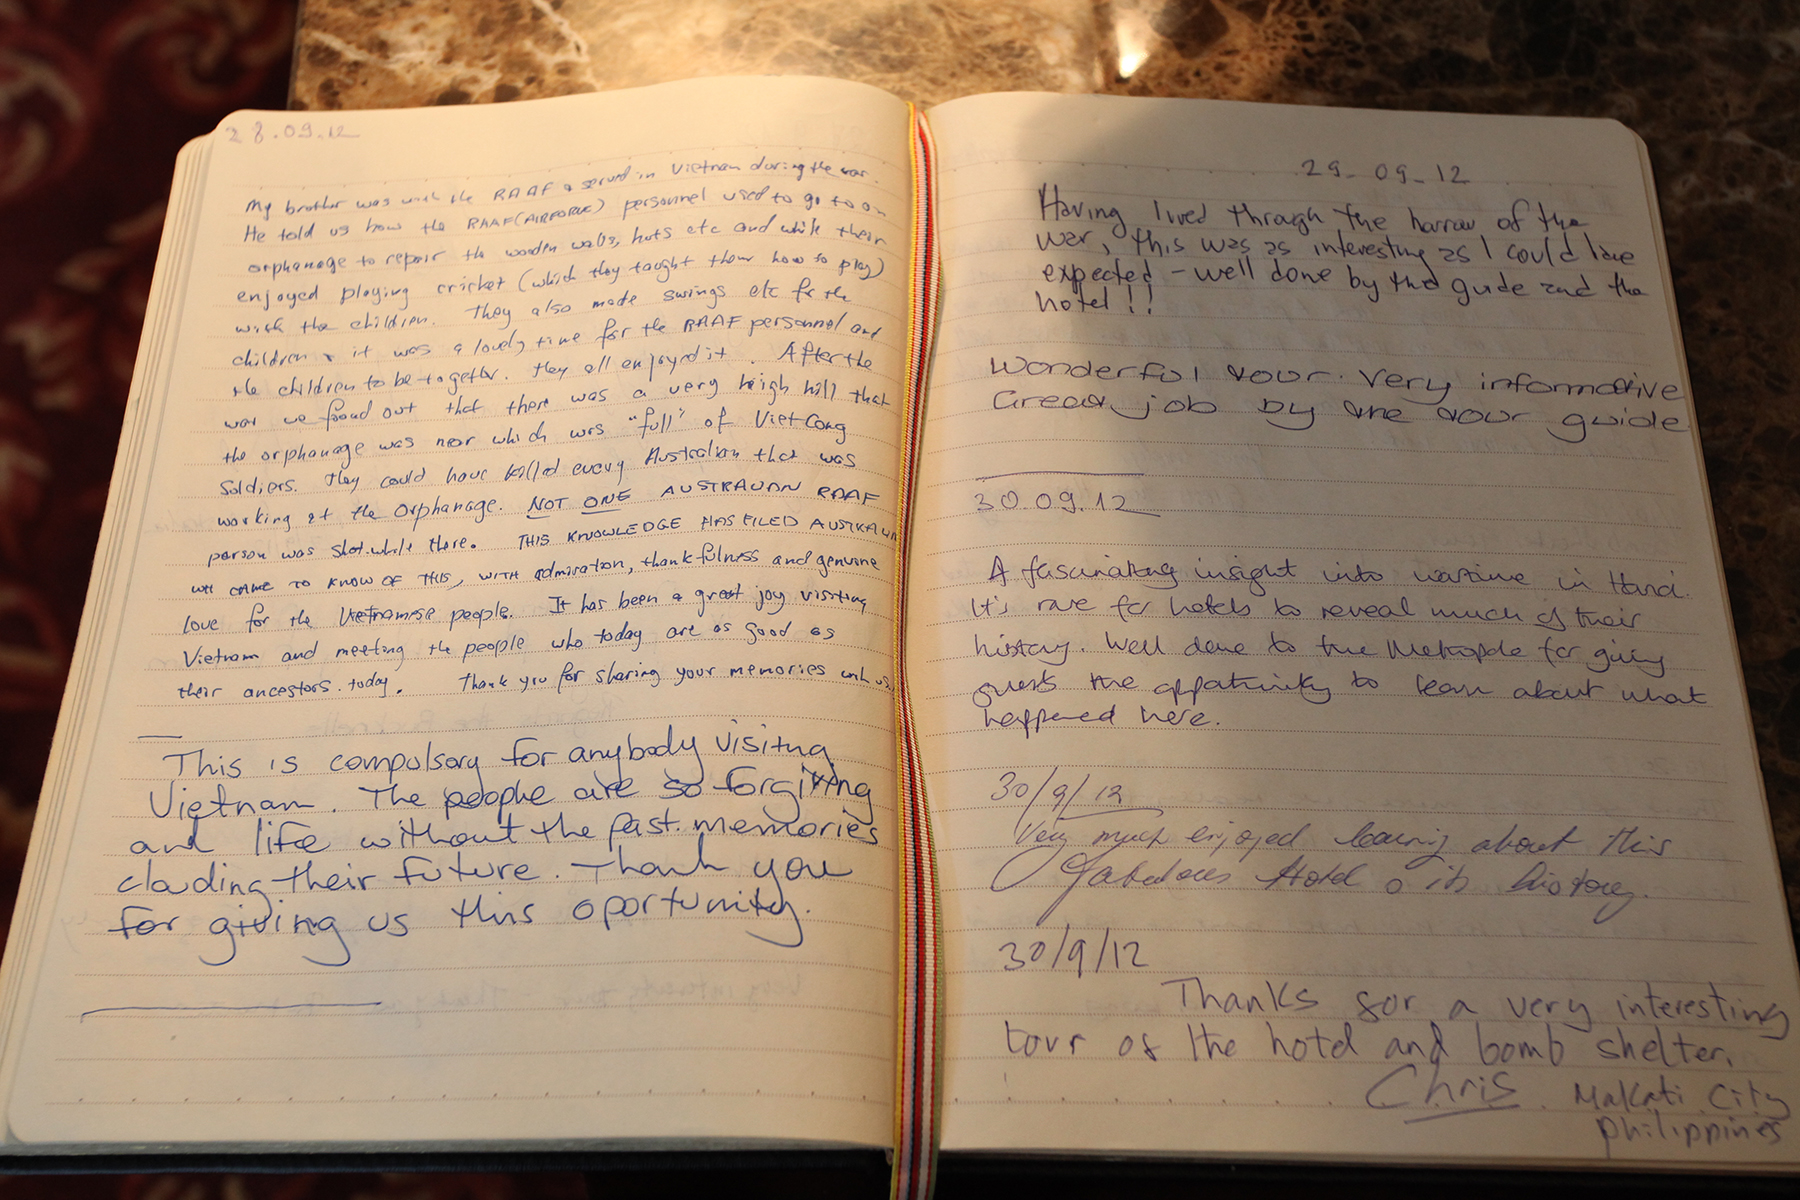 28.09.12
My brother was with the RAAF & served in Vietnam during the war.
He told us how the RAAF (AIRFORCE) personnel used to go to an
orphanage to repair the wooden walls, huts etc and while their
enjoyed playing cricket (which they taught them how to play)
with the children. They also made swings etc for the
children & it was a lovely time for the RAAF personnel and
the children to be together. They all enjoyed it. After the
war we found out that there was a very heigh hill that
the orphanage was near which was "full" of Viet Cong
Soldiers. They could have killed every Australian that was
working at the Orphanage. NOT ONE AUSTRALIAN RAAF
person was shot while there. THIS KNOWLEDGE HAS FILED
CAME TO KNOW OF THIS, WITH admiration, thankfulness and genuine
love for the Vietnamese people. It has been a great joy visiting
Vietnam and meeting the people who today are as good as
their ancestors today. Thank you for sharing your memories with us
This is compulsory for anybody visiting
Vietnam. The people are so forgiving
and life without the past memories
clouding their future. Thank you
for giving us this oportunity.
29-09-12
Having lived through the horror of the
war, this was as interesting as I could have
expected - well done by the guide and the
hotel!!
Wonderful tour. Very informative
Great job by the tour guide
30.09.12
A fascinating insight into wartime in Hanoi.
It's rare for hotels to reveal much of their
history. Well done to the Metropole for giving
guests the opportunity to learn about what
happened here.
30/9/12
Very much enjoyed learning about this
fabulous Hotel & its history.
30/9/12
Thanks for a very interesting
tour of the hotel and bomb shelter.
Chris. Makati City
Philippines